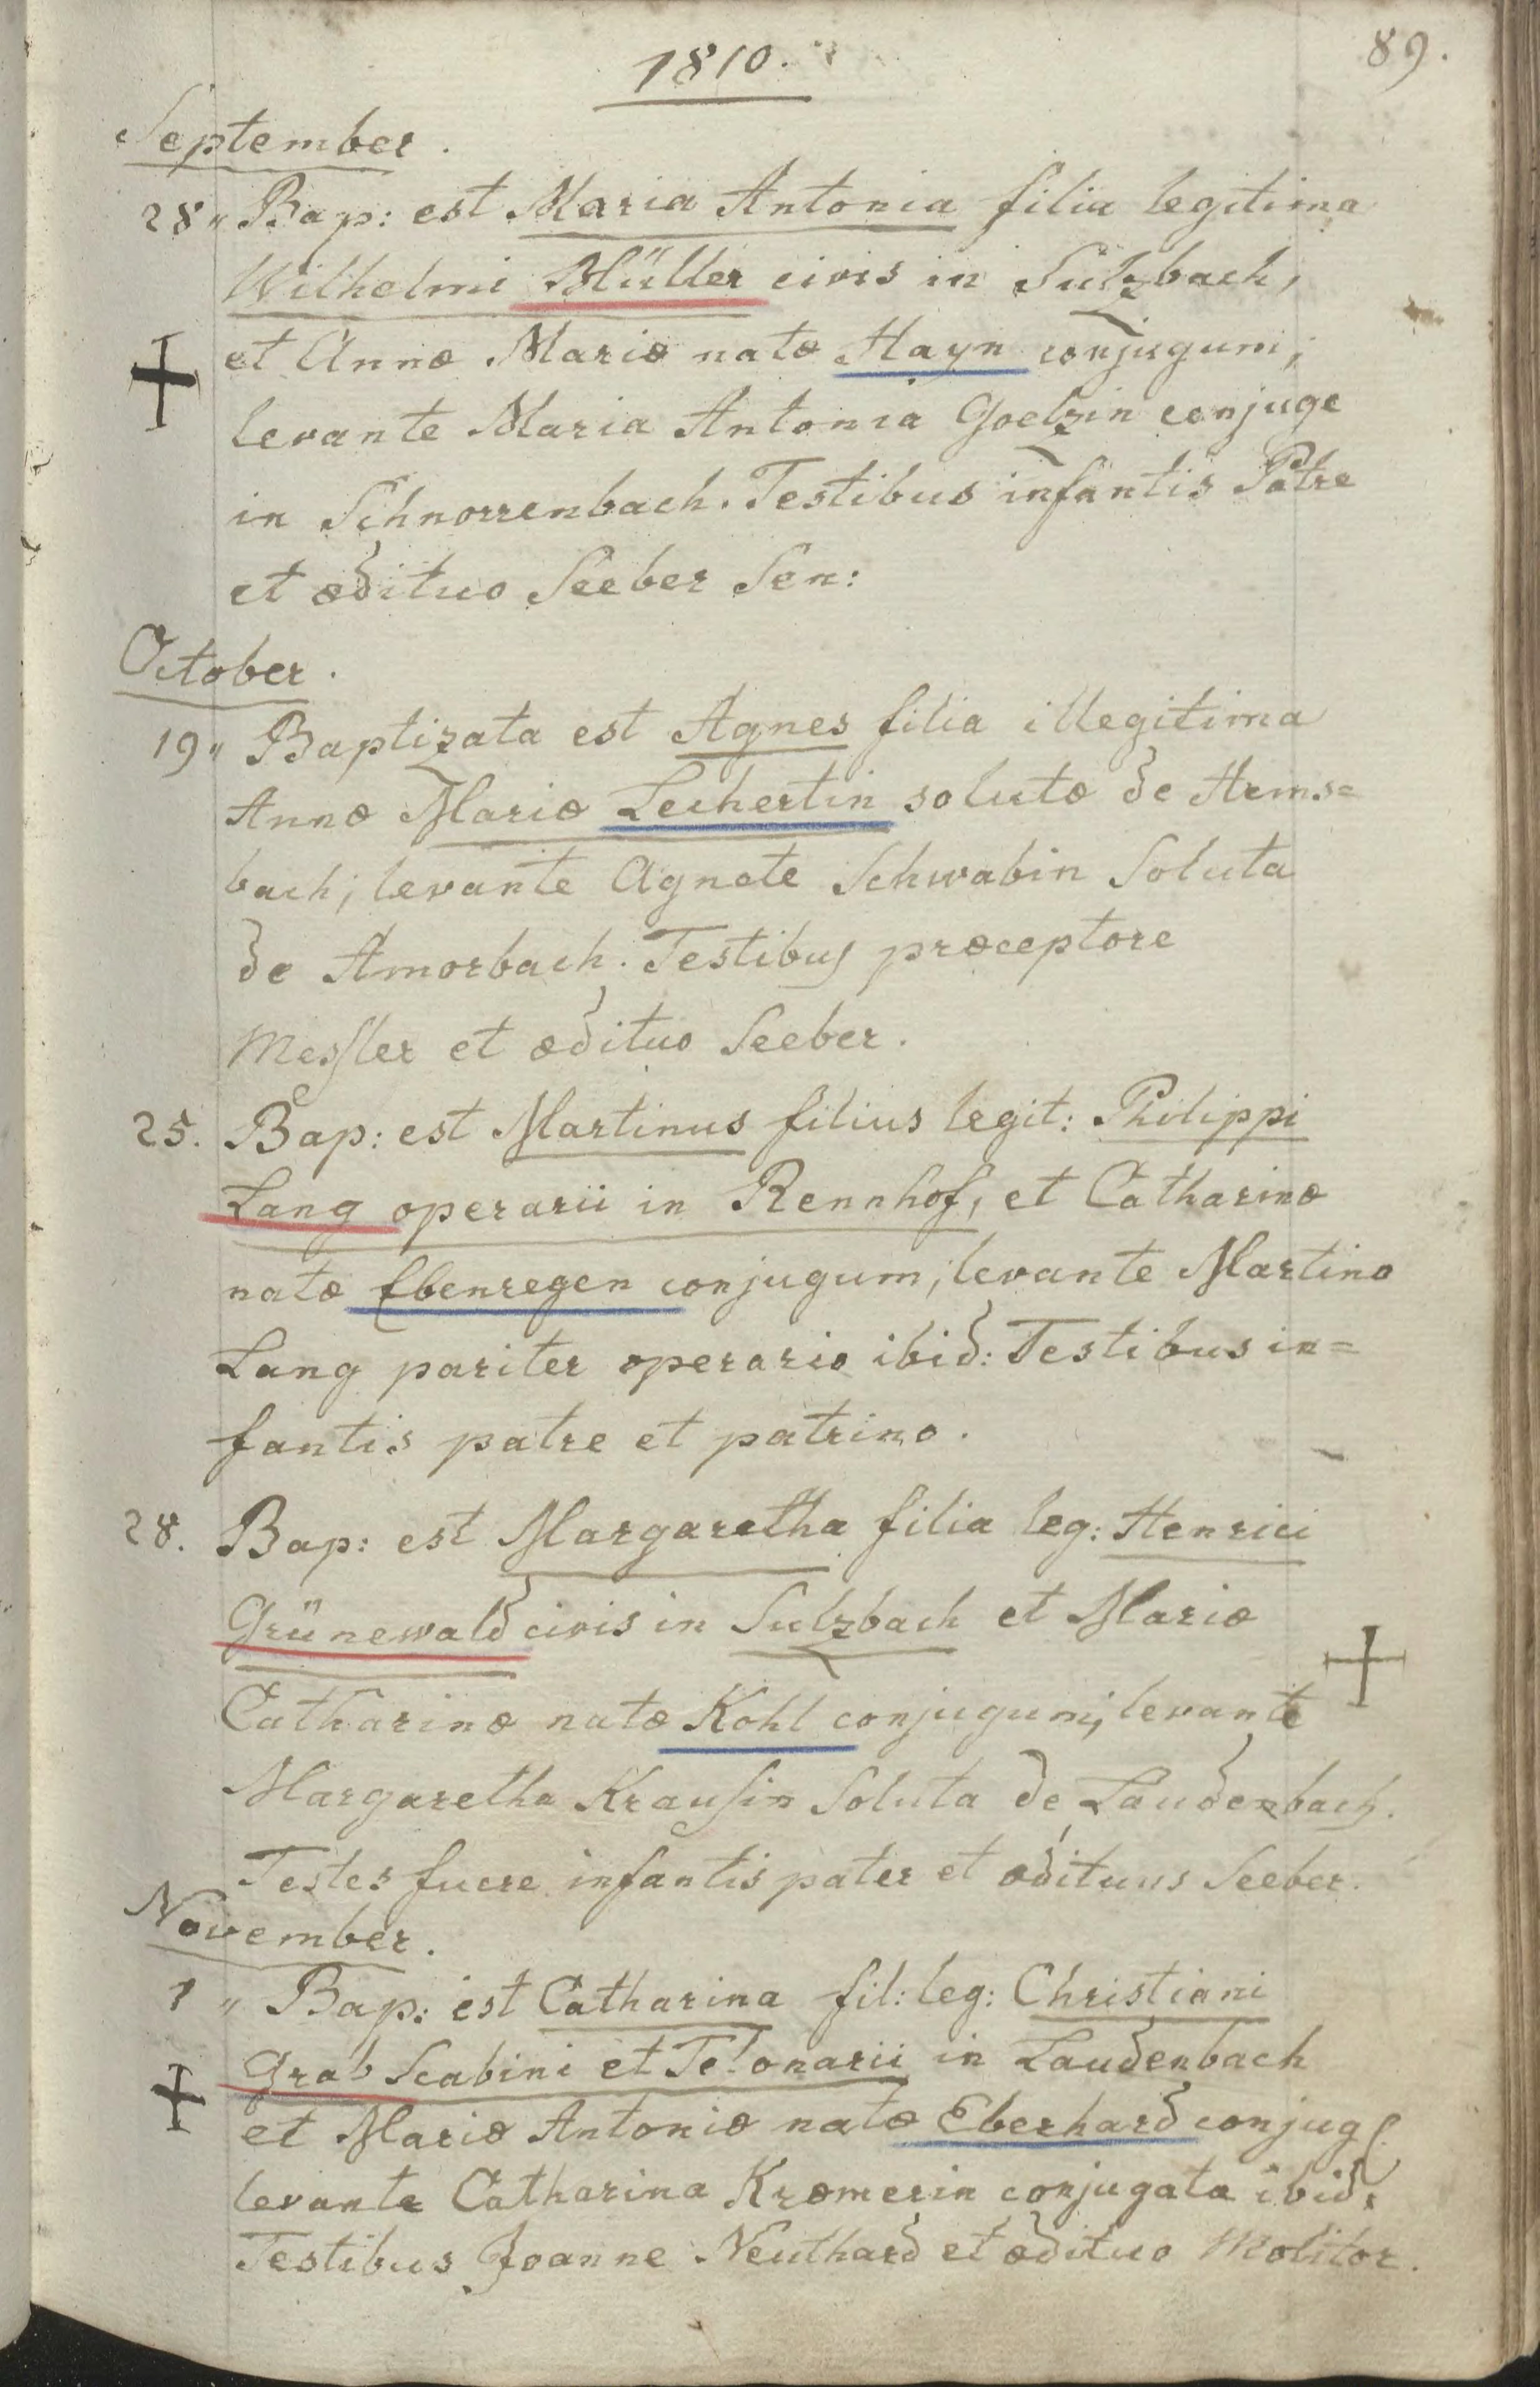 1810.
89.
September.
28 „ Bap: est Maria Antonia filia legitima
Wilhelmi Müller civis in Sulzbach,
et Annæ Mariæ natæ Hayn conjugum,
levante Maria Antonia Goelzin conjuge
in Schnorrenbach. Testibus infantis Patre
et ædituo Seeber Sen:
October.
19 „ Baptizata est Agnes filia illegitima
Annæ Mariæ Lechertin solutæ de Arms=
bach; levante Agnete Schwabin Soluta
de Amorbach. Testibus præceptore
Messler et ædituo Seeber.
25. Bap: est Martinus filius legit: Philippi
Lang operarii in Rennhof, et Catharinæ
natæ Ebenregen conjugum; levante Martino
Lang pariter operario ibid: Testibus in=
fantis patre et patrino.
28. Bap: est Margaretha filia leg: Henrici
Grünewald civis in Sulzbach et Mariæ
Catharinæ natæ Kohl conjugum; levante
Margaretha Krausin Soluta de Laudenbach.
Testes fuere infantis pater et ædituus Seeber.
November.
1 „ Bap: est Catharina fil: leg: Christiani
Grab Scabini et Telonarii in Laudenbach
et Mariæ Antoniæ natæ Eberhard conjug.
levante Catharina Kræmerin conjugata ibid:
Testibus Joanne Neuthard et ædituo Molitor.